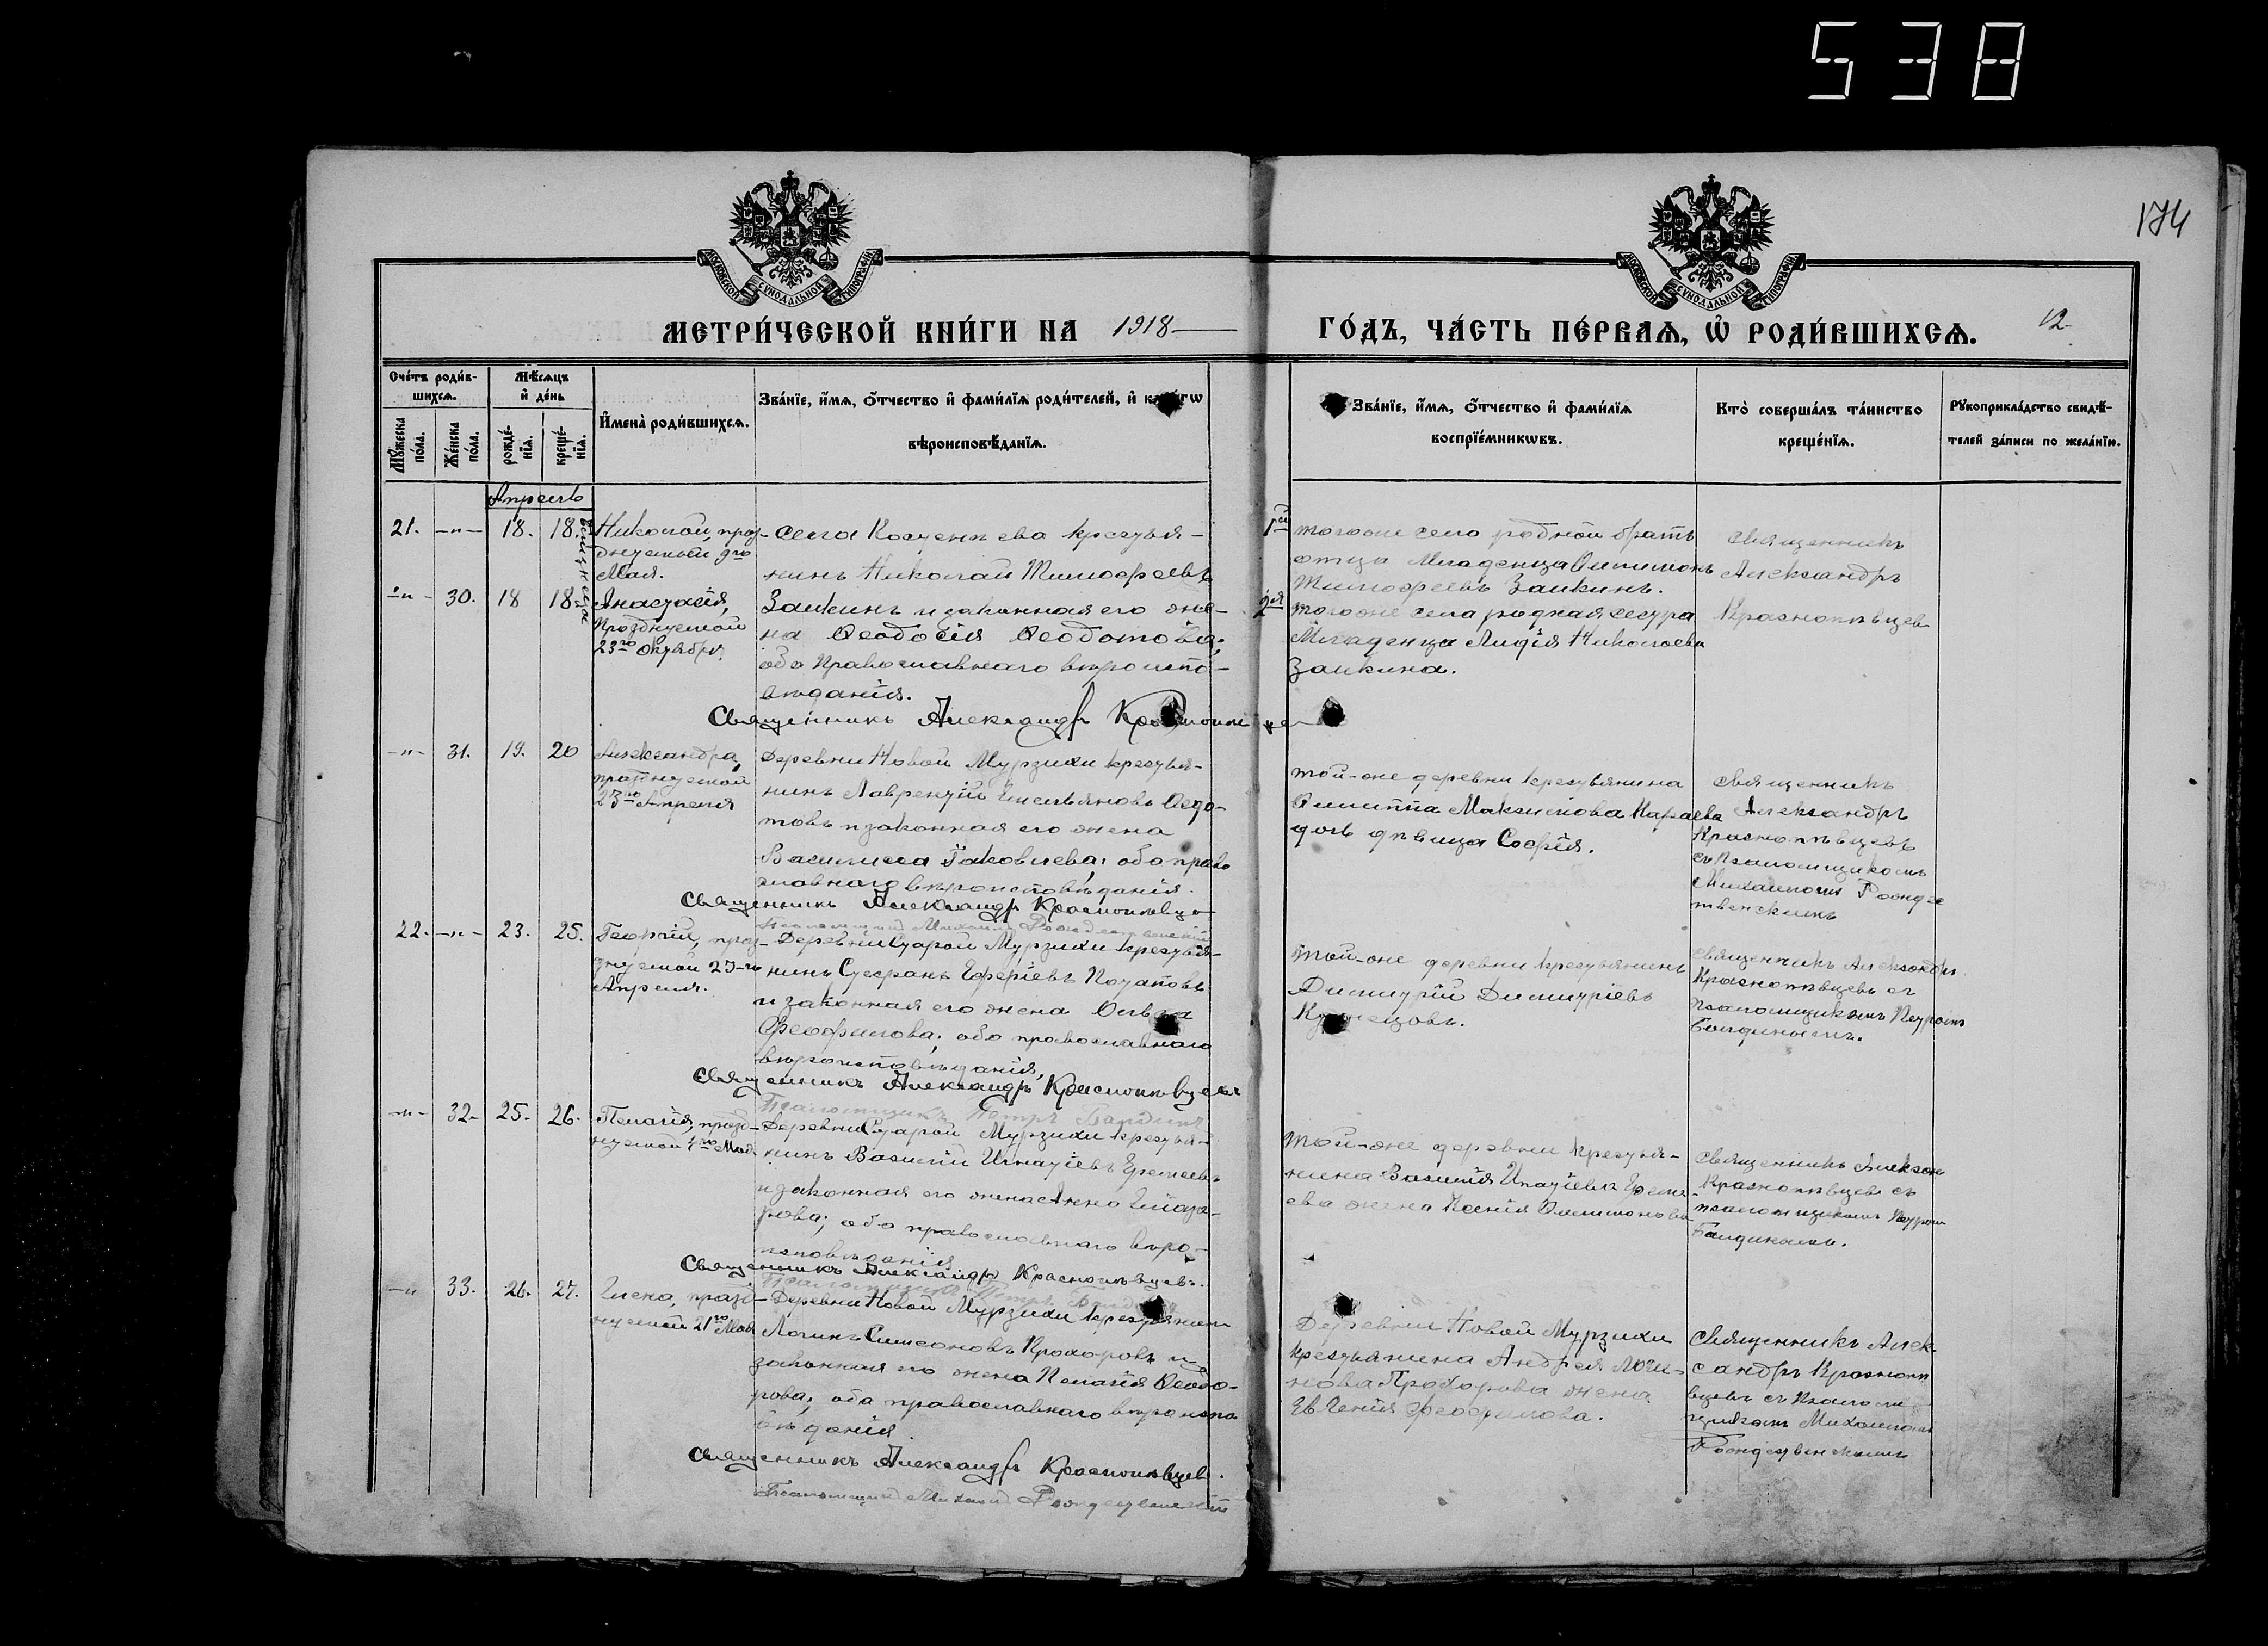 538
174
МОСКОВСКОЙ СѴНОДАЛЬНОЙ ТИПОГРАФІИ
МОСКОВСКОЙ СѴНОДАЛЬНОЙ ТИПОГРАФІИ
МЕТРИ́ЧЕСКОЙ КНИ́ГИ НА 1918 ГО́ДЪ, ЧА́СТЬ ПЕ́РВАѦ, Ѡ҆ РОДИ́ВШИХСѦ. 12
Сче́тъ роди́в-
шихсѧ.
Мꙋ́жеска по́ла.
Же́нска по́ла.
Мѣ́сѧцъ
и҆ де́нь
рожде́-
нїѧ.
креще́-
нїѧ.
И҆мена̀ роди́вшихсѧ.
Зва́нїе, и҆́мѧ, ѻ҆́тчество и҆ фами́лїѧ роди́телей, и҆
вѣроисповѣ́данїѧ.
Зва́нїе, и҆́мѧ, ѻ҆́тчество и҆ фами́лїѧ
воспрїе́мникѡвъ.
Кто̀ соверша́лъ та́инство
креще́нїѧ.
Рꙋкоприкла́дство свидѣ́-
телей за́писи по жела́нїю.
Апрель
21. -"- 18. 18.
Николай, праз-
днуемый 9го
Мая.
-"- 30. 18 18
Анастасія,
Празднуемой
23го Октября.
села Косчеева крестья-
нинъ Николай Тимофеевъ
Заикинъ и законная его же-
на Ѳеодосія Ѳеодотова;
оба Православнаго вѣроиспо-
вѣданія.
Священникъ Александръ
1ый тогоже села родной братъ
отца Младенца
Тимофеевъ Заикинъ.
2ая тогоже села родная сестра
Младенца Лидія Николаева
Заикина.
Священникъ
Александръ
Краснопѣвцев
-"- 31. 19. 20
Александра,
празднуемой
23го Апреля
Деревни Новой Мурзихи крестья-
нинъ Лаврентій Емельяновъ Ѳедо-
товъ и законная его жена
Василисса Іаковлева; оба право
славнаго вѣроисповѣданія.
Священникъ Александръ Краснопѣвцев
Псаломщикъ Михаилъ Рождественскій
той-же деревни крестьянина
Филиппа Максимова
дочь дѣвица Софія.
Священникъ
Александръ
Краснопѣвцевъ
съ Псаломщикомъ
Михаиломъ Рождес
твенскимъ
22. -"- 23. 25.
Георгій, праз-
днуемой 23-го
Апреля.
Деревни Старой Мурзихи крестья-
нинъ Стефанъ Потаповъ
и законная его жена Ольга
Феофилова; оба православнаго
вѣроисповѣданія,
Священникъ Александръ Краснопѣвцевъ
Псаломщикъ Петръ
той-же деревни крестьянинъ
Димитрій Димитріевъ
Кузнецовъ.
Священникъ Александръ
Краснопѣвцевъ съ
псаломщикомъ Петромъ
-"- 32. 25. 26.
Пелагія, празд-
нуемой 4го Мая.
Деревни Старой Мурзихи крестья-
нинъ Василій Игнатіевъ Еремеевъ
и законная его жена Анна Елиаза-
рова; оба православнаго вѣро-
исповѣданія
Священникъ Александръ Краснопѣвцевъ.
Псаломщикъ Петръ
той-же деревни крестья-
нина Василія Игнатіева Ереме-
ева жена Ксенія
Священникъ
Краснопѣвцев съ
псаломщикомъ Петром
-"- 33. 26. 27.
Елена, празд-
нуемой 21го Мая
Деревни Новой Мурзихи крестьянин
Логинъ Симеоновъ Прохоровъ и
законная его жена Пелагія Ѳеодо-
рова; оба православнаго вѣроиспо
вѣданія.
Священникъ Александръ Краснопѣвцев.
Псаломщикъ Михаилъ Рождественскій
Деревни Новой Мурзихи
крестьянина Андрея Логи-
нова Прохорова жена
Евгенія Феофилова.
Священникъ Алек-
сандръ Краснопѣ
вцевъ съ Псалом
щикомъ Михаиломъ
Рождественскимъ